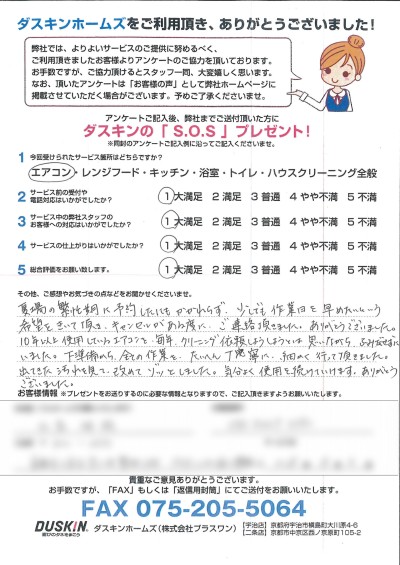 ダスキンホームズをご利用頂き、ありがとうございました!
弊社では、よりよいサービスのご提供に努めるべく、
ご利用頂きましたお客様よりアンケートのご協力を頂いております。
お手数ですが、ご協力頂けるとスタッフ一同、大変嬉しく思います。
なお、頂いたアンケートは「お客様の声」として弊社ホームページに
掲載させていただく場合がございます。予めご了承くださいませ。
アンケートご記入後、弊社までご送付頂いた方に
ダスキンの「S.O.S」プレゼント!
※同封のアンケートご記入例に沿ってご記入くださいませ。
1 今回受けられたサービス箇所はどちらですか?
エアコン・レンジフード・キッチン・浴室・トイレ・ハウスクリーニング全般
2 サービス前の受付や
電話対応はいかがでしたか? 1 大満足 2 満足 3 普通 4 やや不満 5 不満
3 サービス中の弊社スタッフの
お客様への対応はいかがでしたか? 1 大満足 2 満足 3 普通 4 やや不満 5 不満
4 サービスの仕上がりはいかがでしたか? 1 大満足 2 満足 3 普通 4 やや不満 5 不満
5 総合評価をお願い致します。 1 大満足 2 満足 3 普通 4 やや不満 5 不満
その他、ご感想やお気づきの点などをお聞かせくださいませ。
夏場の繁忙期に予約したにもかかわらず、少しでも作業日を早めたいという
希望をきいて頂き、キャンセルがある度に、ご連絡頂きました。ありがとうございました。
10年以上使用しているエアコンを、毎年、クリーニング依頼しようしようとは思いながら、ふみ出せずに
いました。下準備から、全ての作業を、たいへん丁寧に、細めに行って頂きました。
出てきた汚れを見て、改めてゾッとしました。気分よく使用を続けていけます。ありがとう
ございました。
お客様情報 ※プレゼントをお送りするのに必要な情報となりますので、ご記入頂きますようお願いいたします。
貴重なご意見ありがとうございます。
お手数ですが、「FAX」もしくは「返信用封筒」にてご送付をお願いいたします。
FAX 075-205-5064
DUSKIN 喜びのタネをまこう ダスキンホームズ(株式会社プラスワン) [宇治店] 京都府宇治市槇島町大川原4-6
[二条店] 京都市中京区西ノ京原町105-2